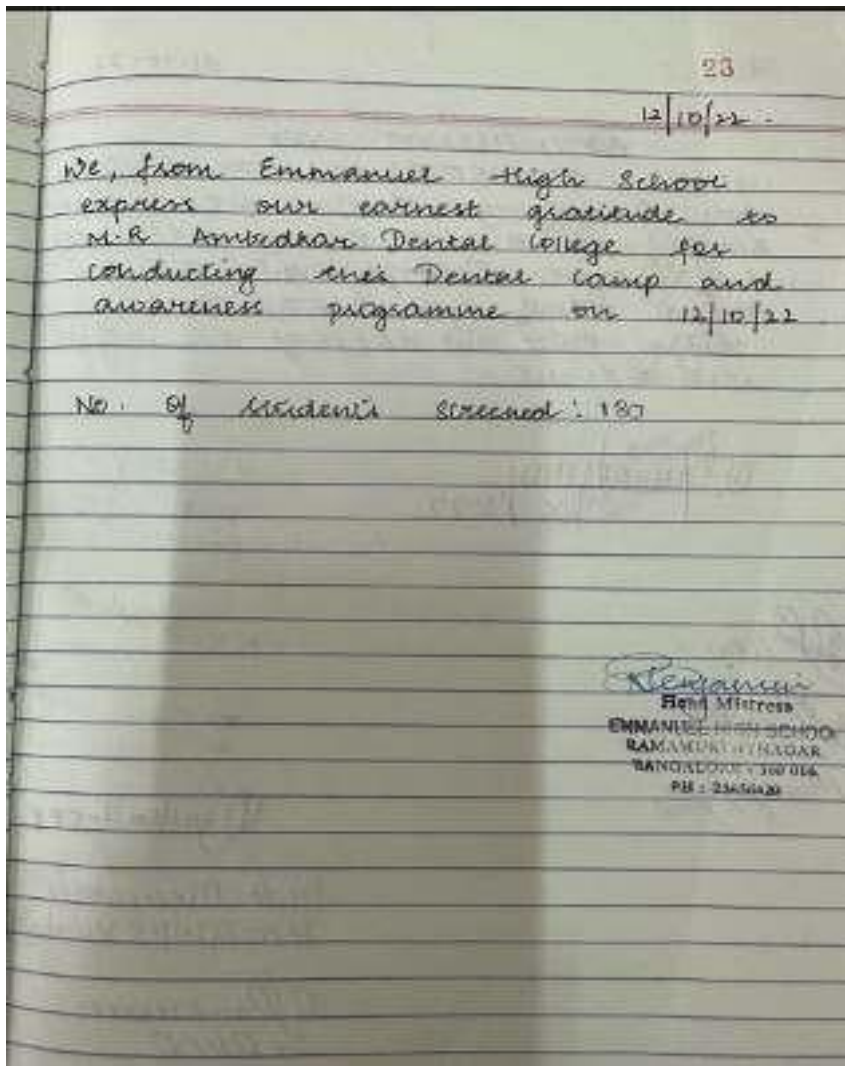 23
12/10/22.
We, from Emmanuel High School
express our earnest gratitude to
M.R Ambedkar Dental College for
conducting this Dental Camp and
awareness programme on 12/10/22
No. of students screened : 187
Head Mistress
EMMANUEL HIGH SCHOOL
RAMAMURTHYNAGAR
BANGALORE - 560 016
PH :